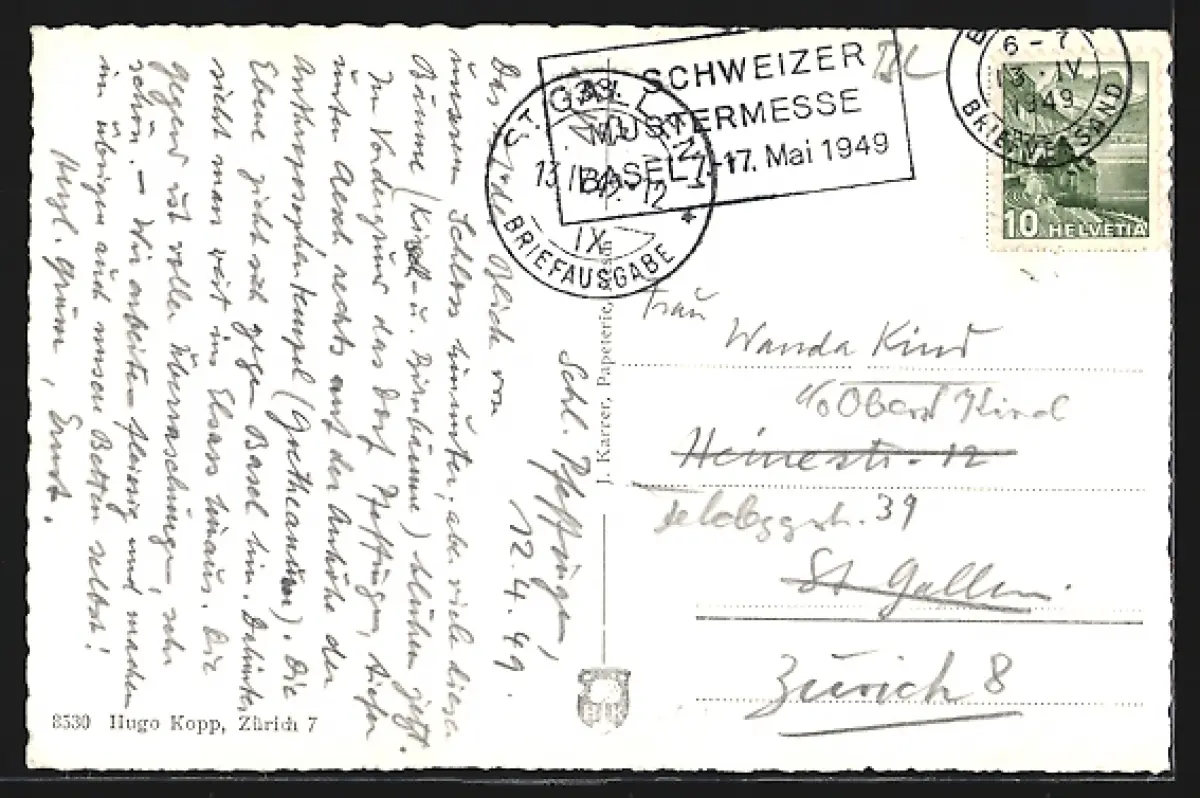 Schl. Pfeffingen,
12.4.49.
Das Blick von
unserem Schloss hinunter, aber viele dieser
Bäume (Kirsch- u. Birnbäume) blühen jetzt.
Im Vordergrund das Dorf Pfeffingen, tiefer
unten Aesch, rechts auf der Anhöhe der
Anthroposophentempel (Goetheanum). Die
Ebene zieht sich gegen Basel hin. Dahinter
sieht man weit ins Elsass hinaus. Die
Gegend ist voller Überraschungen, sehr
schön. – Wir arbeiten fleissig und machen
im Übrigen auch unsere Betten selbst!
Herzl. Grüsse, Ernst.
8530 Hugo Kopp, Zürich 7
J. Karrer, Papeterie,
ST. GALLEN 1
13 IV 49 - 12
IX
BRIEFAUSGABE
SCHWEIZER
MUSTERMESSE
BASEL 7.-17. Mai 1949
6 - 7
13. IV
1949
BRIEFVERSAND
10 HELVETIA
Frau
Wanda Kind
c/o Oberst Kind
Heinestr. 12
Feldeggstr. 39
St Gallen.
Zürich 8